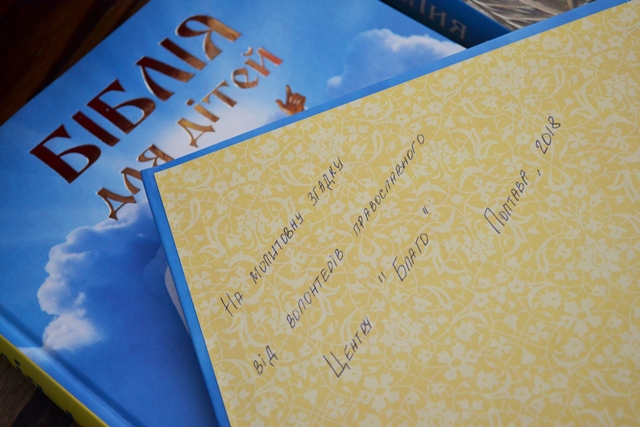 БІБЛІЯ
для дітей
На молитовну згадку
від волонтерів православного
Центру "Благо"
Полтава, 2018